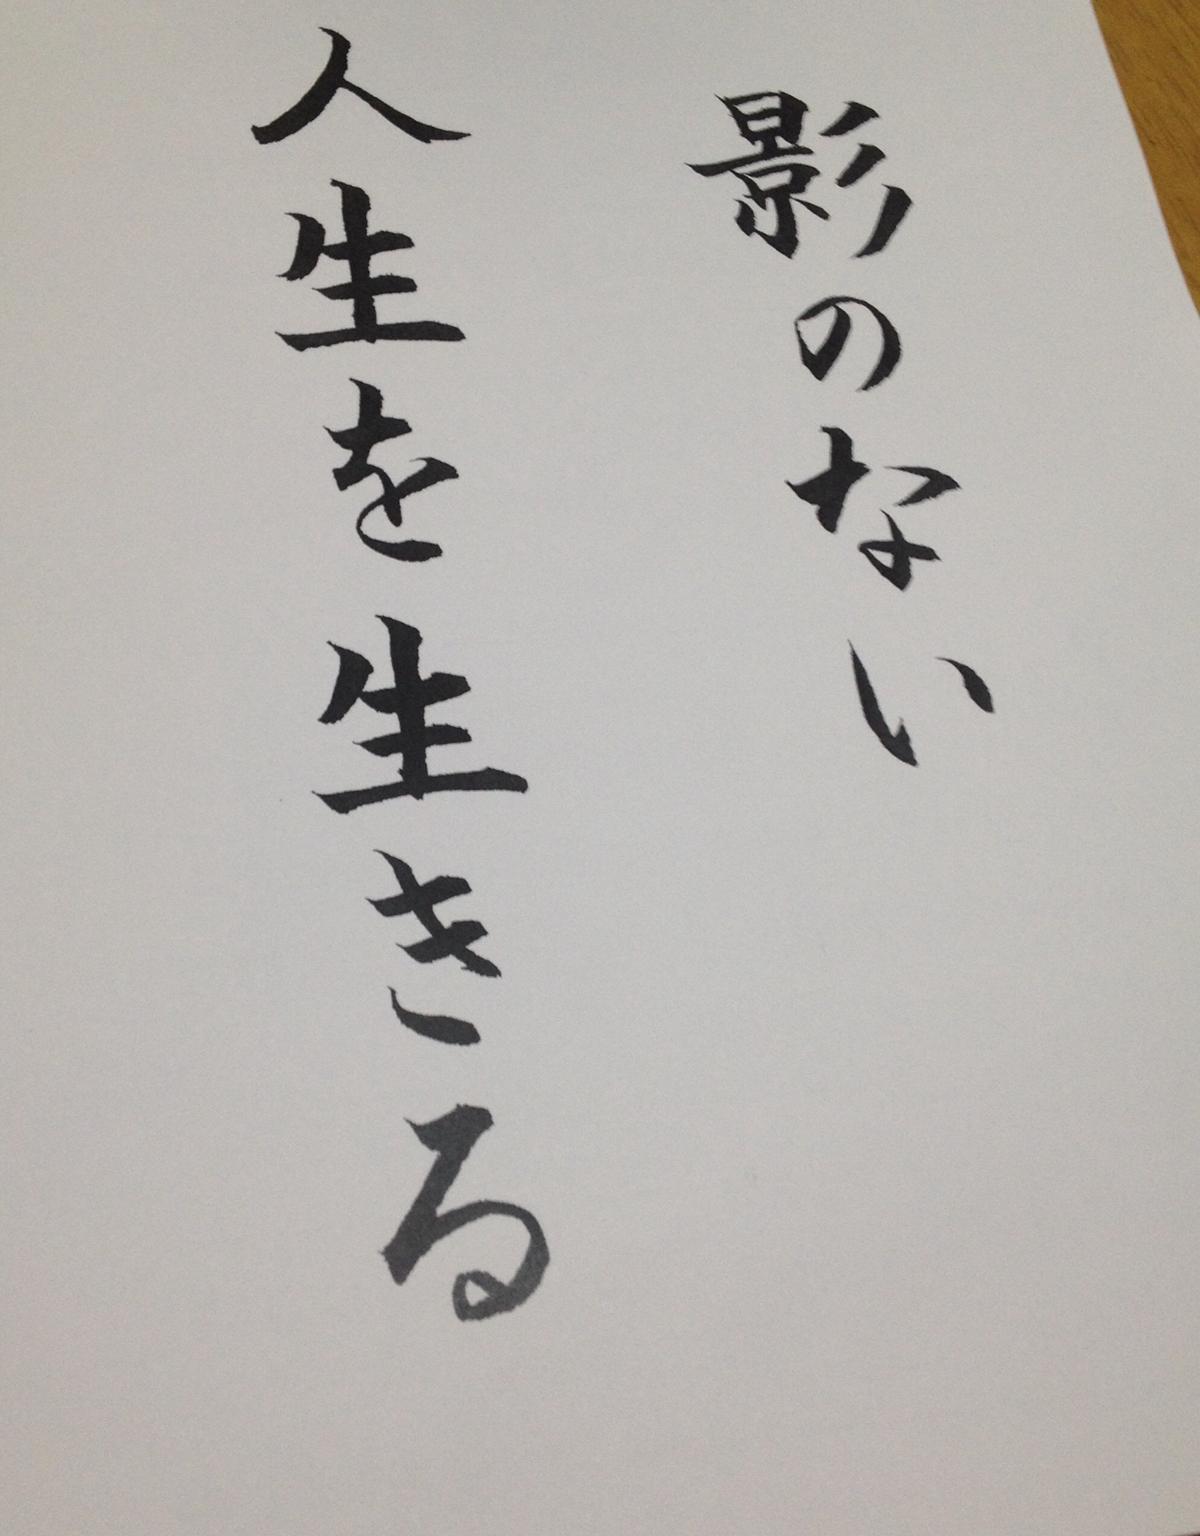 影のない
人生を生きる